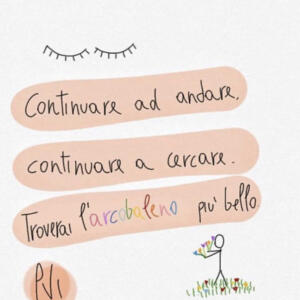 Continuare ad andare,
continuare a cercare.
Troverai l'arcobaleno più bello